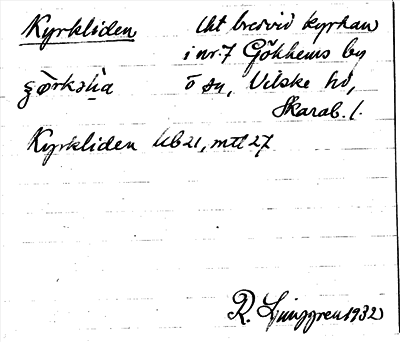 Kyrkliden
Ukt bredvid kyrkan
i nr. 7 Gökhems by
o sn, Vilske hd,
Skarab. l.
Kyrkliden Ub 21, mtl 27
R. Ljunggren 1932